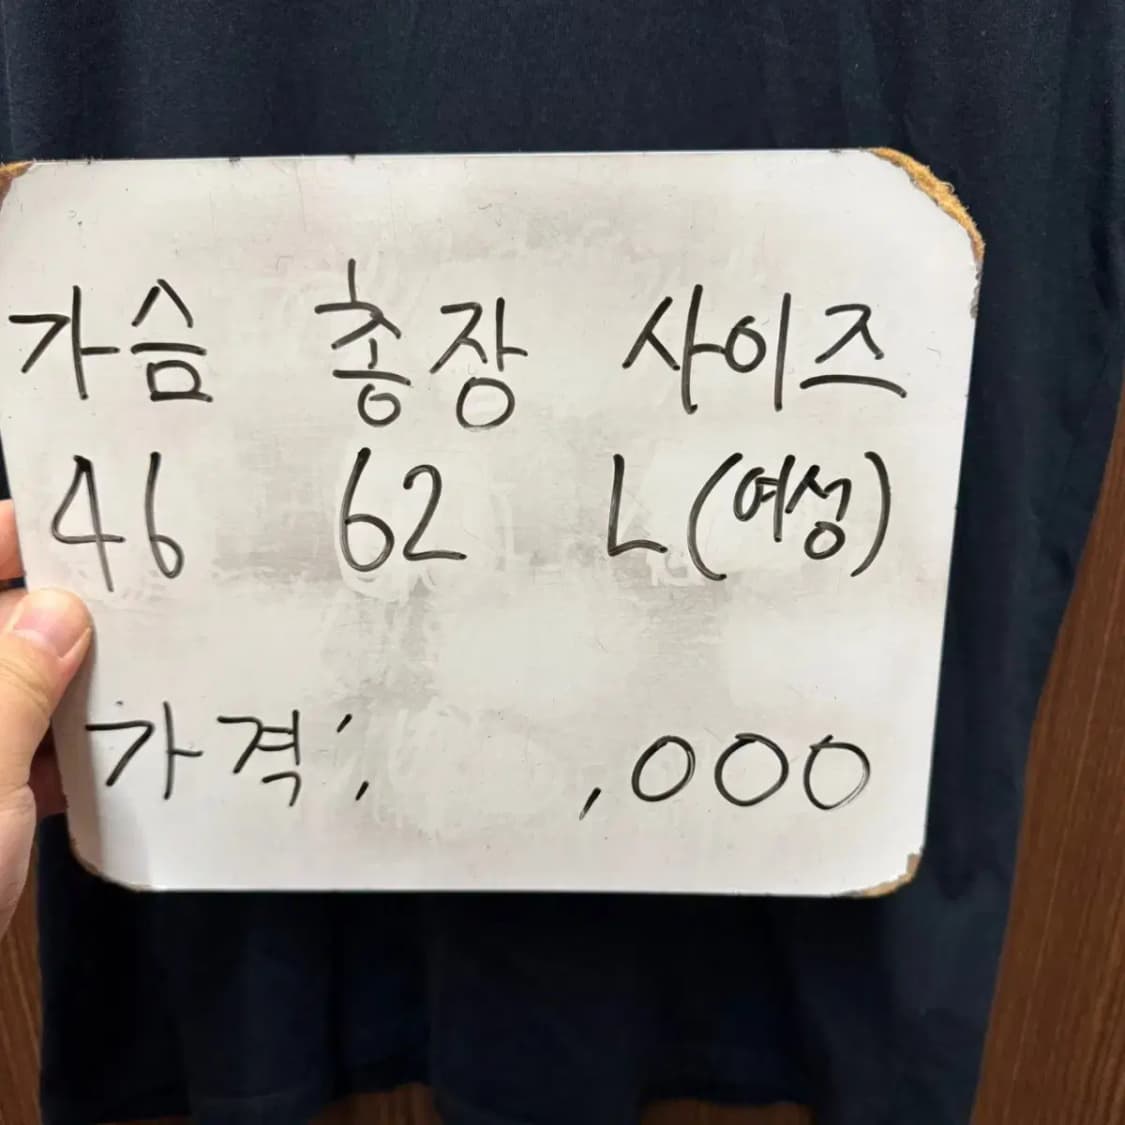 가슴 총장 사이즈
46 62 L (여성)
가격: ,000